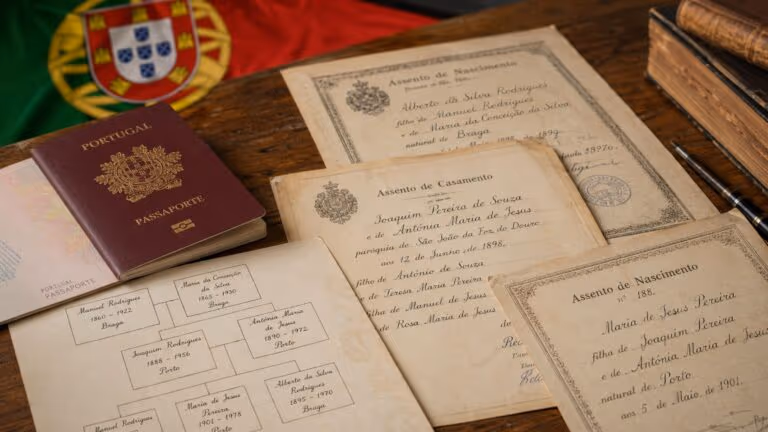 PORTUGAL
PASSAPORTE
PORTUGAL
PASSAPORTE
Assento de Nascimento
Alberto da Silva Rodrigues
filho de Manuel Rodrigues
e de Maria da Conceição da Silva
natural de Braga
Assento de Casamento
Joaquim Pereira de Souza
e de Antónia Maria de Jesus
paróquia de São João da Foz do Douro
aos 12 de Junho de 1898,
filho de António de Souza
e de Teresa Maria Pereira
filha de Manuel de Jesus
e de Rosa Maria de Jesus
Assento de Nascimento
nº 188.
Maria de Jesus Pereira
filha de Joaquim Pereira
e de Antónia Maria de Jesus
natural de Porto
aos 5 de Maio de 1901.
Manuel Rodrigues
1860 - 1922
Braga
Maria da Conceição
da Silva
1865 - 1930
Braga
Joaquim Rodrigues
1888 - 1956
Porto
Antónia Maria
de Jesus
1890 - 1972
Porto
Manuel Rodrigues
Maria de Jesus
Pereira
1901 - 1978
Porto
Alberto da Silva
Rodrigues
1895 - 1970
Braga